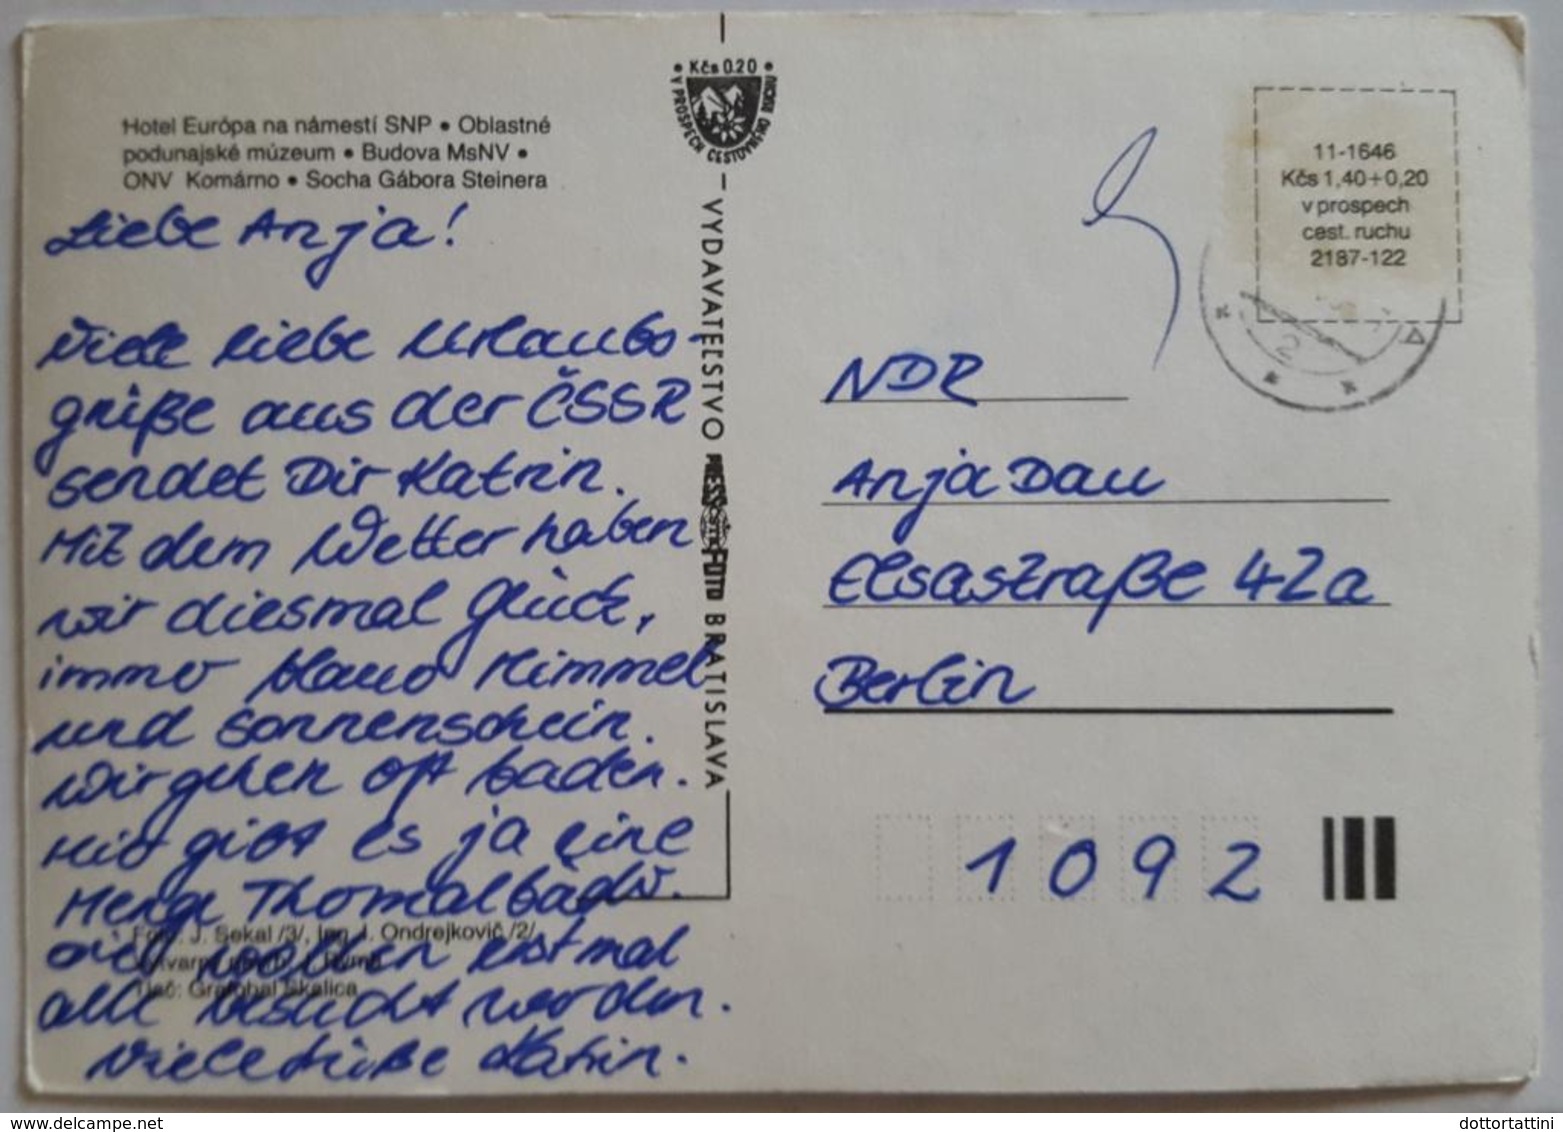 Hotel Európa na námestí SNP • Oblastné
podunajské múzeum • Budova MsNV •
ONV Komárno • Socha Gábora Steinera
Liebe Anja!
Viele liebe Urlaubs-
grüße aus der ČSSR
sendet Dir Katrin.
Mit dem Wetter haben
wir diesmal Glück,
immer blauer Himmel
und Sonnenschein.
Wir gehen oft baden.
Hier gibt es ja eine
Menge Thermalbäder.
die wollen erstmal
alle besucht werden.
Viele Grüße Katrin.
Foto: J. Sekal /3/, Ing. I. Ondrejkovič /2/
Tlač: Grafobal Skalica
• Kčs 0.20 •
V PROSPECH CESTOVNÉHO RUCHU
VYDAVATEĽSTVO PRESSFOTO BRATISLAVA
11-1646
Kčs 1,40+0,20
v prospech
cest. ruchu
2187-122
2
NDR
Anja Dau
Elsastraße 42a
Berlin
1092
dottortattini